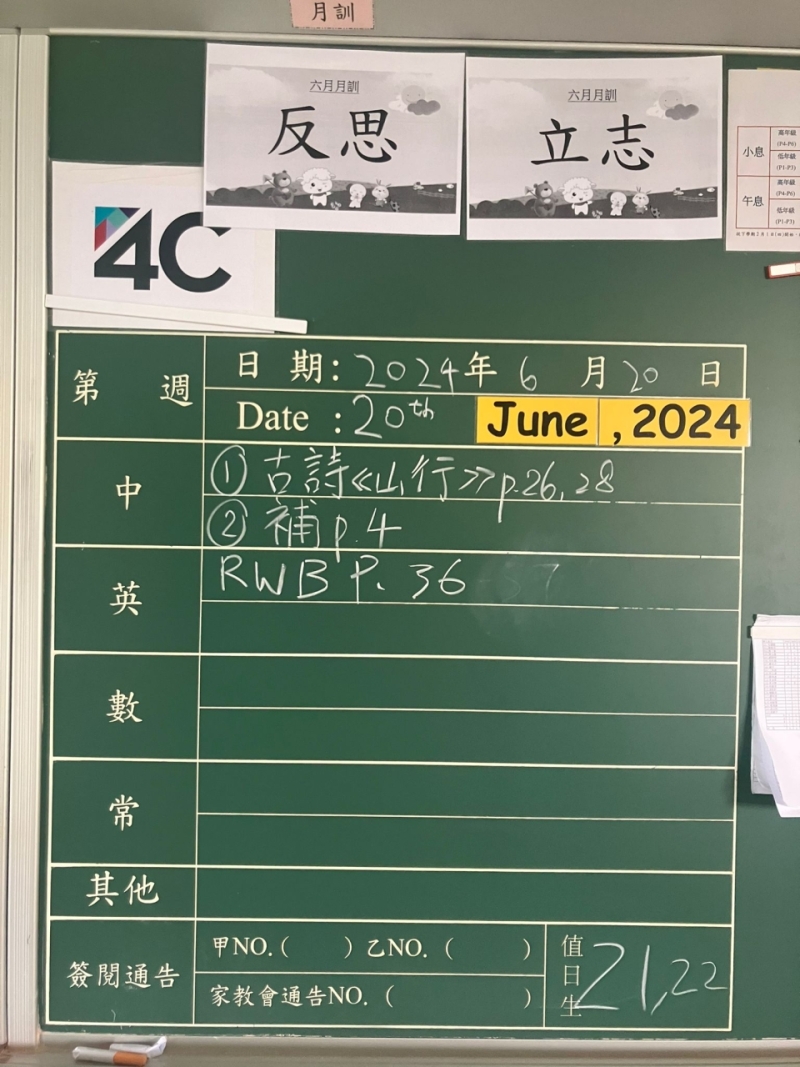 月訓
六月月訓
反思
六月月訓
立志
小息
高年級
(P4-P6)
低年級
(P1-P3)
午息
高年級
(P4-P6)
低年級
(P1-P3)
4C
第 週
日 期: 2024年 6 月 20 日
Date : 20th June , 2024
中
① 古詩《山行》p.26, 28
② 補 p.4
英
RWB P. 36
數
常
其他
簽閱通告
甲NO.( ) 乙NO. ( )
家教會通告NO. ( )
值日生
21, 22